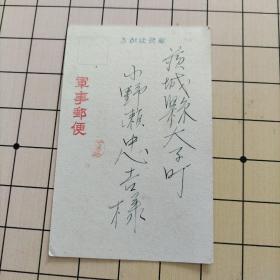 郵便はがき
軍事郵便
茨城縣大子町
小野瀬忠吉様